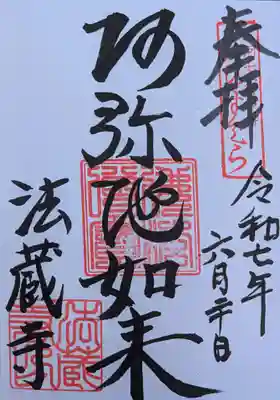 奉拝
令和七年
六月二十日
阿弥陀如来
法蔵寺